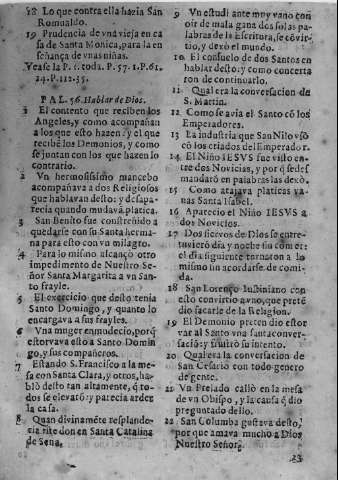 18 Lo que contra ella hazia San
Romualdo.
19 Prudencia de vna vieja en ca
sa de Santa Monica, para la en
señança de vnas niñas.
Vease la P. 6. tod. 1. P. 57. 1. P. 61.
24. P. 112. 35.
PAL. 56. Hablar de Dios.
1 El contento que reciben los
Angeles, y como acompañan
a los que esto hazen: y el que
recibẽ los Demonios, y como
se juntan con los que hazen lo
contrario.
2 Vn hermosissimo mancebo
acompañava a dos Religiosos
que hablavan desto: y desapa-
recia quando mudavã platica.
3 San Benito fue constreñido a
quedarse con su Santa herma-
na para esto con vn milagro.
4 Para lo mismo alcançò otro
impedimento de Nuestro Se-
ñor Santa Margarita a vn San-
to frayle.
5 El exercicio que desto tenia
Santo Domingo, y quanto lo
encargava a sus frayles.
6 Vna muger enmudecio, porq̃
estorvava esto a Santo Domin
go, y sus compañeros.
7 Estando S. Francisco a la me-
sa con Santa Clara, y otros, ha-
blò desto tan altamente, q̃ to-
dos se elevarõ: y parecia arder
la casa.
8 Quan divinamẽte resplando-
cia este don en Santa Catalina
de Sena.
9 Vn estudiante muy vano con
oir de mala gana dos solas pa-
labras de la Escritura, se cõvir-
tio, y dexò el mundo.
10 El consuelo de dos Santos en
hablar desto: y como concerta
ron de continuarlo.
11 Qual era la conversacion de
S. Martin.
12 Como se avia el Santo cõ los
Emperadores.
13 La industria que San Nilo vsò
cõ los criados del Emperador.
14 El Niño IESVS fue visto en-
tre dos Novicias, y por q̃ se des
mandarõ en palabras las dexò.
15 Como atajava platicas va-
nas Santa Isabel.
16 Aparecio el Niño IESVS a
dos Novicios.
17 Dos siervos de Dios se entre-
tuvierõ dia y noche sin comer:
el dia siguiente tornaron a lo
mismo sin acordarse de comi-
da.
18 San Lorenço Iustiniano con
esto convirtio a vno, que preté
dio sacarle de la Religion.
19 El Demonio pretendio estor
var al Santo vna santa conver-
saciõ: y frustrò su intento.
20 Qual era la conversacion de
San Cesario con todo genero
de gente.
21 Vn Prelado callò en la mesa
de vn Obispo, y la causa q̃ dio
preguntado dello.
22 San Columba gustava desto,
por que amava mucho a Dios
Nuestro Señor.
23